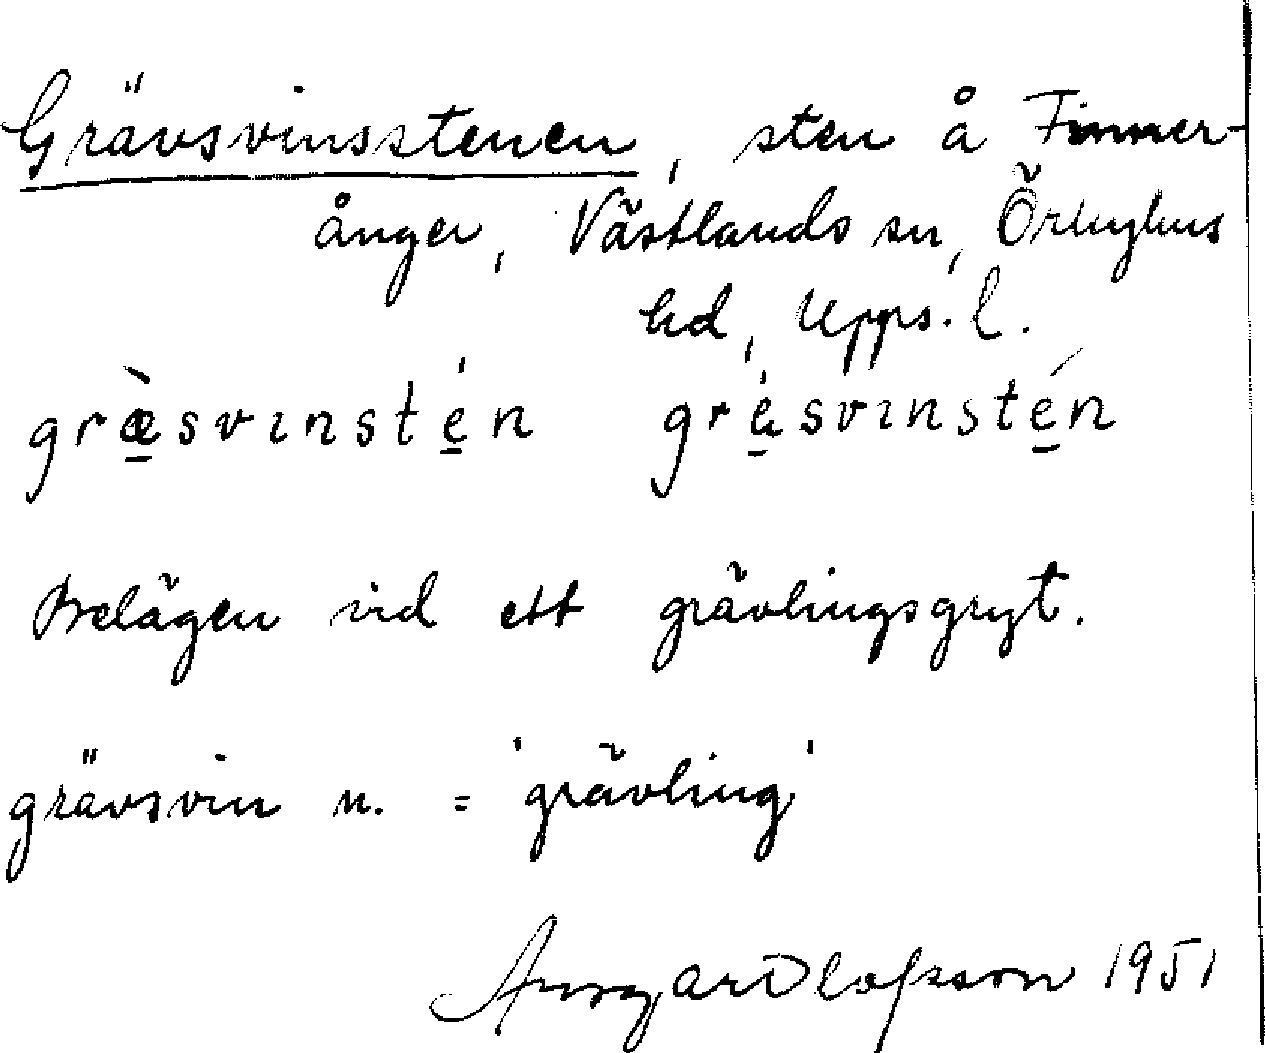 Grävsvinsstenen, sten å Finner-
ånger, Västlands sn, Örbyhus
hd, Upps. l.
græ̀svinsté̱n grè̱svinsté̱n
Belägen vid ett grävlingsgryt.
grävsvin n. = 'grävling'
Ansgar Olofsson 1951